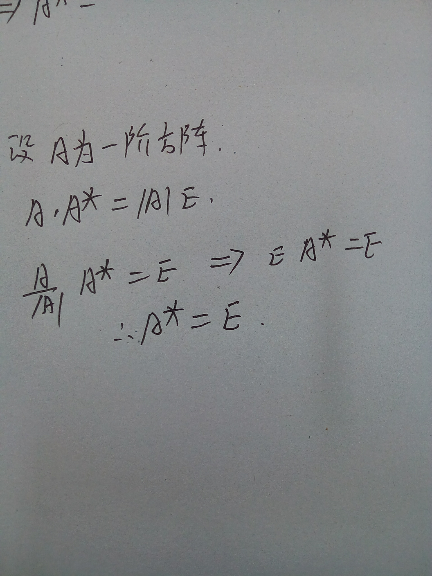 ⇒ A* =
设 A为一阶方阵.
A·A* = |A| E.
A/|A| A* = E ⇒ E A* = E
∴ A* = E.